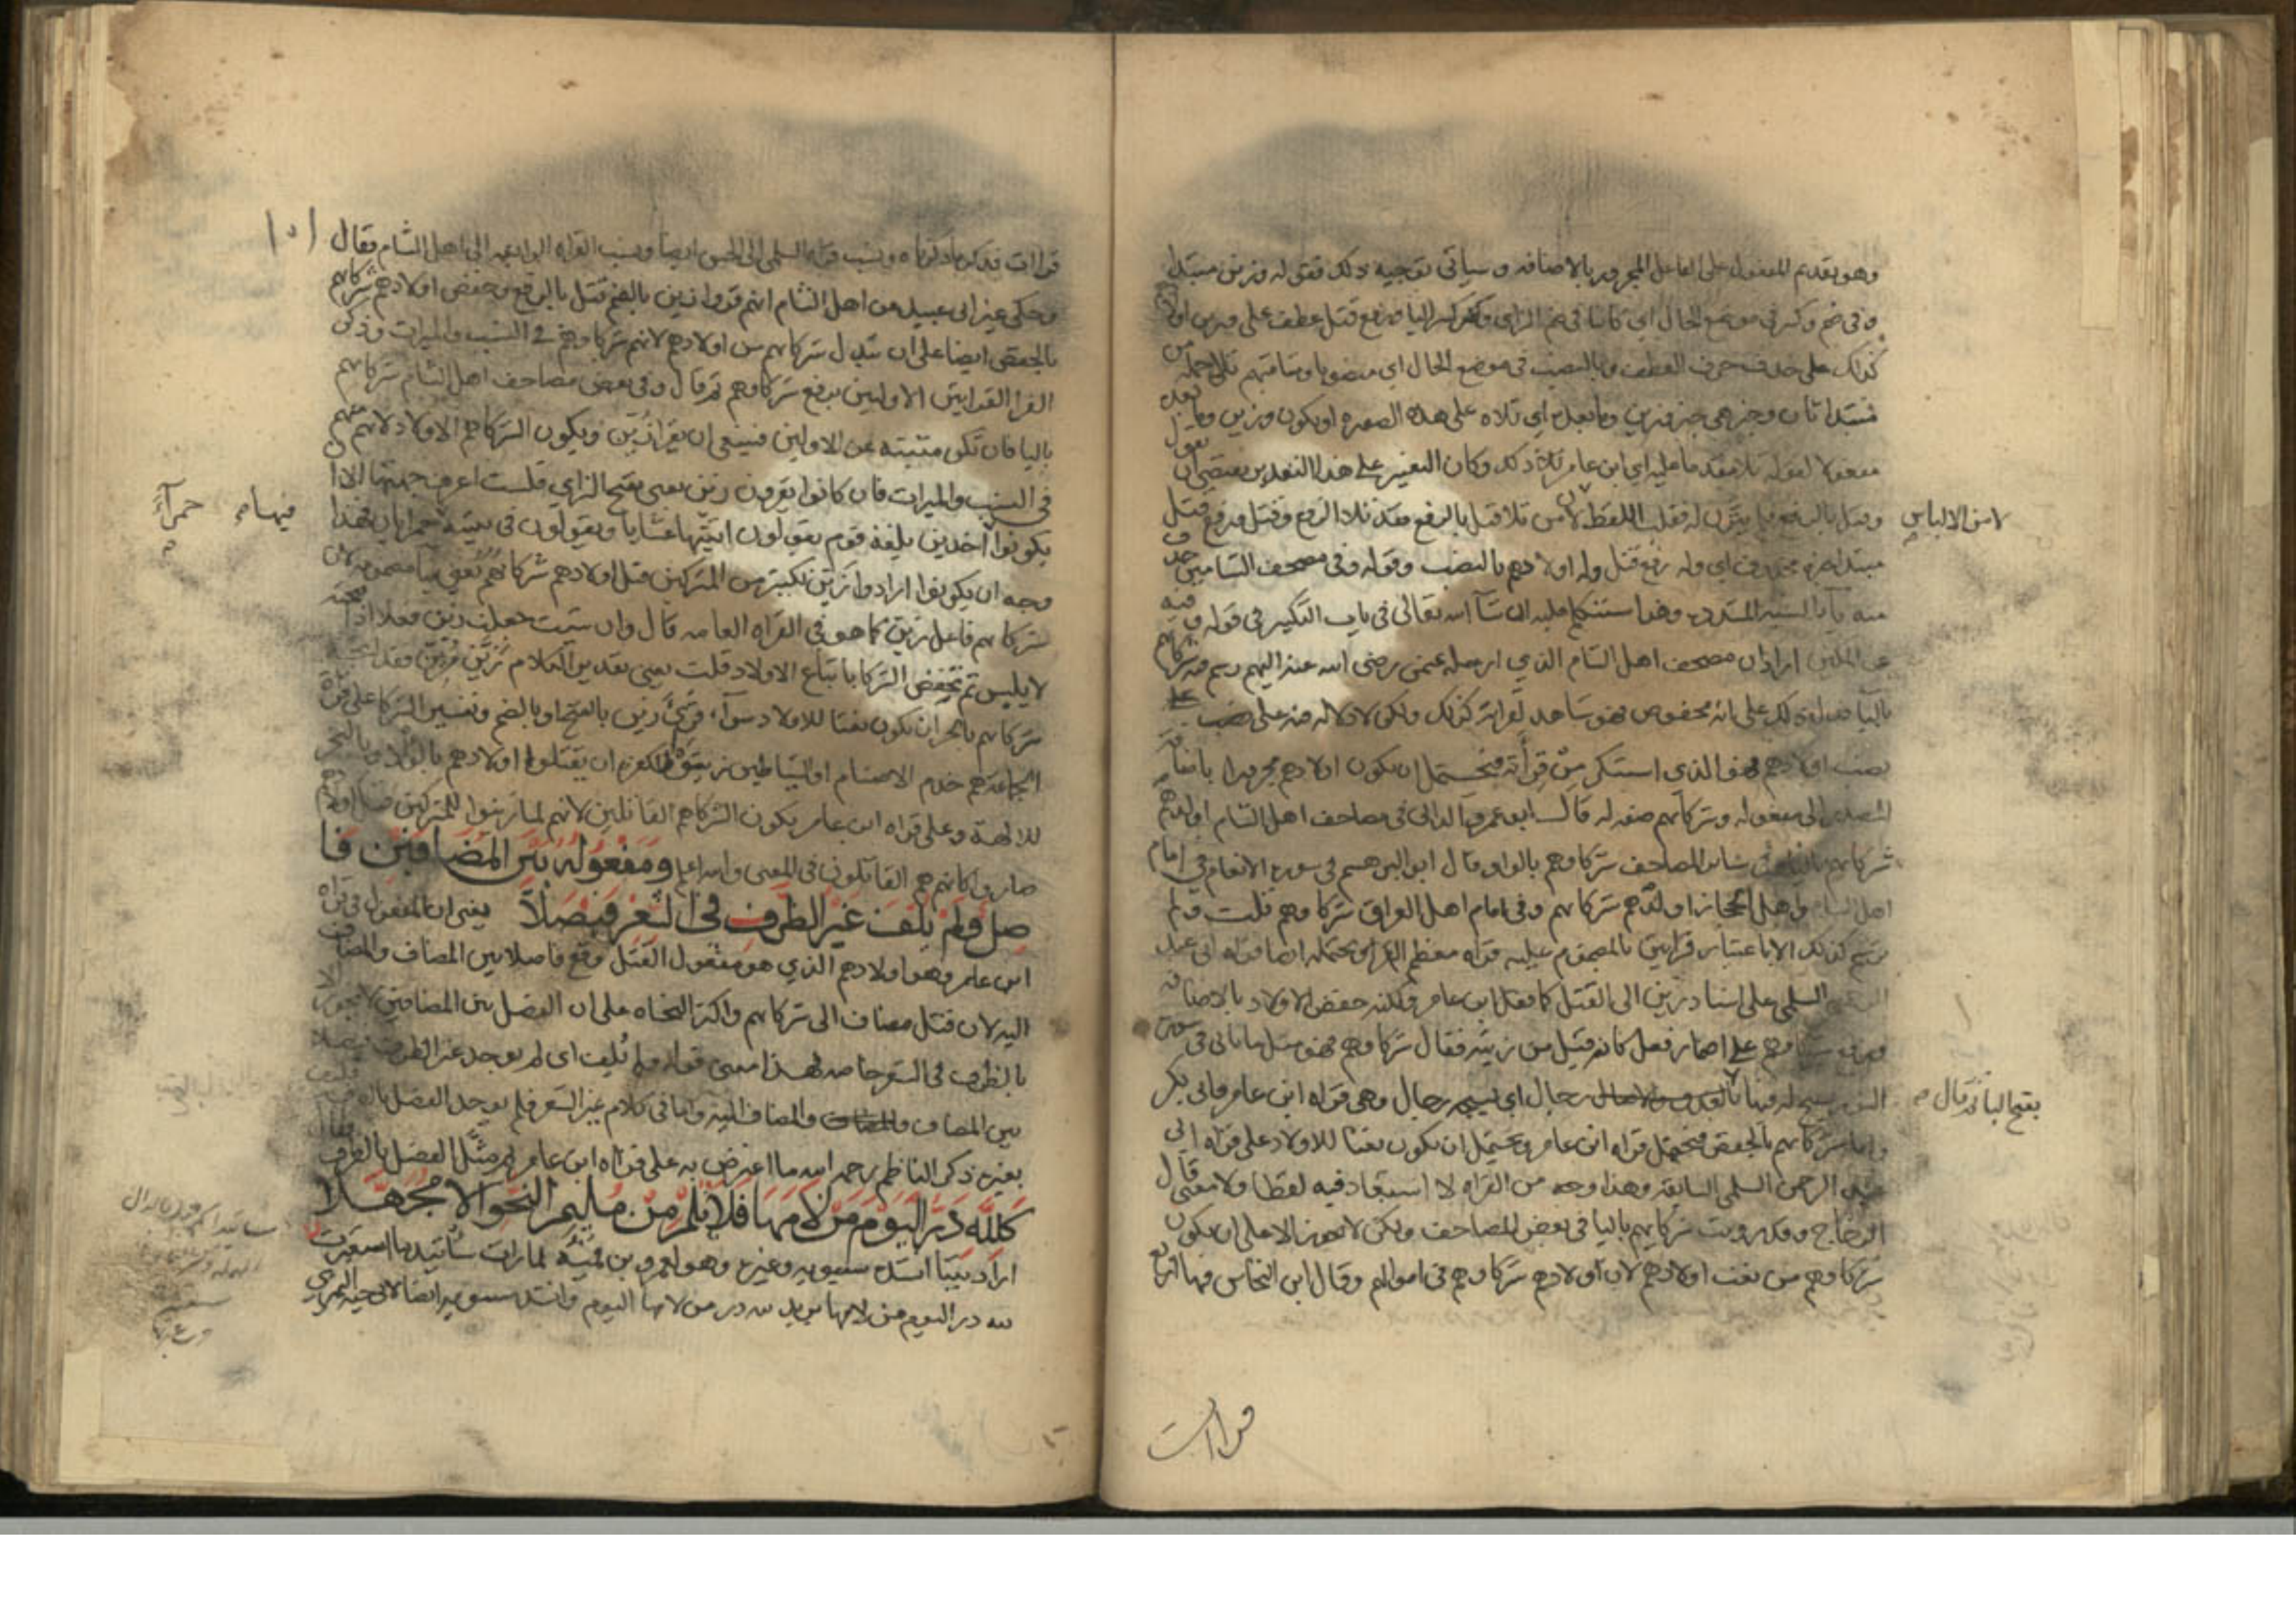 وهو تقديم المفعول على الفاعل المجرور بالاضافه وسياتي توجيه ذلك فقوله وزين مبتدا
وفي ضم وكسر في موضع الحال اي كاينا في ضم الزاي وكسر اليا ورفع قتل عطف على وزين او
كذلك على حذف حرف العطف وبالنصب في موضع الحال اي منصوبا وشامتهم تلا جملة من
مبتدا ثان وخبر هي خبر وزين وما بعده اي تلاه على هذه الصوره او يكون وزين وما بعده
مفعولا لقوله تلا مقدما عليه اي ابن عامر تلا ذلك وكان التعبير على هذا التقدير يقتضي ان يقول
وقتل بالرفع اللفظ لان من تلا قتل بالرفع فقد تلا الرفع وقتل ورفع قتل
لامن الالباس
مبتدا خبره محذوف اي وله رفع قتل وله اولادهم بالنصب وقوله وفي مصحف الشاميين حذف
منه ياء الستير المستدير وهذا سنتكلم عليه ان شا الله تعالى في باب التكبير في قوله وفيه
عن المكين اراد ان مصحف اهل الشام الذي ارسله عثمن رضي الله عنه اليهم رسم فيه شركايهم
باليا فدل ذلك على انه مخفوض فهو شاهد لقراته كذلك ولكن لا دلاله فيه على نصب
نصب اولادهم فهو الذي استنكر من قرأته فيحتمل ان يكون اولادهم مجرورا باضافة
المصدر الى مفعوله وشركايهم صفه له قال ابو عمرو الداني في مصاحف اهل الشام اولادهم
شركايهم باليا وفي ساير المصاحف شركاوهم بالواو وقال ابو البرهسم في سورة الانعام في امام
اهل الشام واهل الحجاز اولادهم شركايهم وفي امام اهل العراق شركاوهم قلت ولم
ترسم كذلك الا باعتبار قراتين فالمضموم عليه قراه معظم القرا ويحتمله ايضا قراه ابي عبد
الرحمن السلمي على اسناد زين الى القتل كما فعل ابن عامر ولكنه خفض الاولاد بالاضافه
ورفع شركاوهم على اضمار فعل كانه قيل من زينه فقال شركاوهم فهو مثل ما ياتي في سورة
النور يسبح له فيها بالغدو والاصال رجال اي يسبحه رجال وهي قراه ابن عامر وابي بكر
بفتح البا ثم قال
واما شركايهم بالخفض فيحتمل قراه ابن عامر ويحتمل ان يكون نعتا للاولاد على قراه ابي
عبد الرحمن السلمي السابقه وهذا وجه من القراه لا استبعاد فيه لفظا ولا معنى قال
الزجاج وقد رويت شركايهم باليا في بعض المصاحف ولكن لا يجوز الا على ان يكون
شركاوهم من نعت اولادهم لان اولادهم شركاوهم في اموالهم وقال ابن النحاس فيها اربع
قراات
١٥١
قراات فذكر ما ذكرناه ونسب قراه السلمي الى الحسن ايضا ونسب القراه الرابعه الى اهل الشام فقال
وحكى غير ابي عبيد عن اهل الشام انهم قروا زين بالضم قتل بالرفع وخفض اولادهم شركايهم
بالخفض ايضا على ان تبدل شركايهم من اولادهم لانهم شركاوهم في النسب والميراث وذكر
الفرا القراتين الاوليين برفع شركاوهم ثم قال وفي بعض مصاحف اهل الشام شركايهم
باليا فان تكن مثبته عن الاولين فينبغي ان يقرا زُيّن ويكون الشركا هم الاولاد لانهم منهم
في النسب والميراث فان كانوا يقرون زين يعني بفتح الزاي فلست اعرف جهتها الا ان
فيها م حمرآءَ
يكونوا آخذين بلغة قوم يقولون اتيتها عشايا ويقولون في تثنية حمرا حمرايان فهذا
وجه ان يكونوا ارادوا زين لكثير من المشركين قتل اولادهم شركايُهم يعني بيا مضمومه لان
شركايهم فاعل زين كما هو في القراه العامه قال وان شيت جعلت زين فعلا اذا فتحته
لا يلبس ثم تخفض الشركا باتباع الاولاد قلت يعني تقدير الكلام زَيّن مُزَيّن فقد
شركايهم بالجر ان يكون نعتا للاولاد سوآء قريَ زين بالفتح او بالضم وتفسير الشركا على قراة
الجماعة هم خدم الاصنام او الشياطين زينوا للكفره ان يقتلوا اولادهم بالواد وبالنحر
للالهة وعلى قراه ابن عامر يكون الشركا هم القاتلين لانهم لما زينوا للمشركين قتل اولادهم
صاروا كانهم هم القاتلون في المعنى والله اعلم ومفعُوله بَين المضافين فا
صل ولم يُلف غير الظرف في الشعر فيصلا يعني ان المفعول في قراه
ابن عامر وهو اولادهم الذي هو مفعول القتل وقع فاصلا بين المضاف والمضاف
اليه لان قتل مضاف الى شركايهم واكثر النحاه على ان الفصل بين المضافين لا يجوز الا
بالظرف في الشعر خاصه فهذا معنى قوله ولم يُلف اي لم يوجد غير الظرف فيصلا
بين المضاف والمضاف اليه واما في كلام غير الشعر فلم يوجد الفصل بالظرف فكيف
بغيره ذكر الناظم رحمه الله ما اعترض به على قراه ابن عامر ثم مثّل الفصل بالظرف فقال
كلِلّه دَرُّ اليَومَ مَن لامَهَا فلا تَلُمْ مِن مُليمي النحو الا مجهّلا
اراد بيتا انشده سيبويه وغيره وهو لعمرو بن قميئه لما رات ساتيدما استعبرت
لله در اليوم من لامها يريد لله در من لامها اليوم وانشد سيبويه ايضا لابي حيه النميري